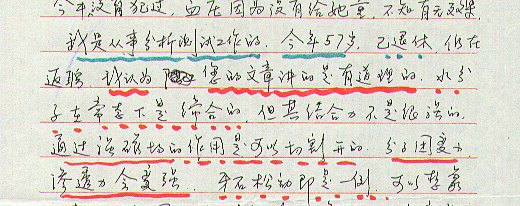 今年没有犯过, 血压因为没有给她量, 不知有无效果
我是从事分析测试工作的. 今年57岁, 已退休, 仍在
返聘, 我认为 您的文章讲的是有道理的. 水分
子在常态下是缔合的. 但其结合力不是很强的.
通过强磁场的作用是可以切割开的. 分子团变小
渗透力会变强. 牙石松动即是一例. 可以